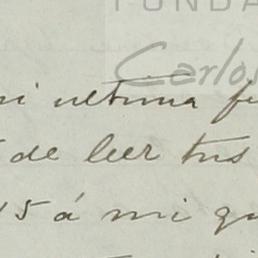 FUNDA
Carlos
ultima
de leer tus
15 á mi